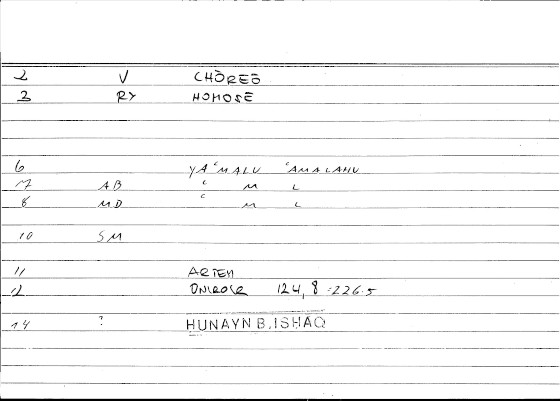 2 V CHŌREŌ
3 RY HOMOSE
6 YAʿMALU ʿAMALAHU
7 AB ʿ M L
8 MD ʿ M L
10 SM
11 ARTEM
12 ONIROCR 124, 8 = 226.5
14 ? HUNAYN B. ISHAQ